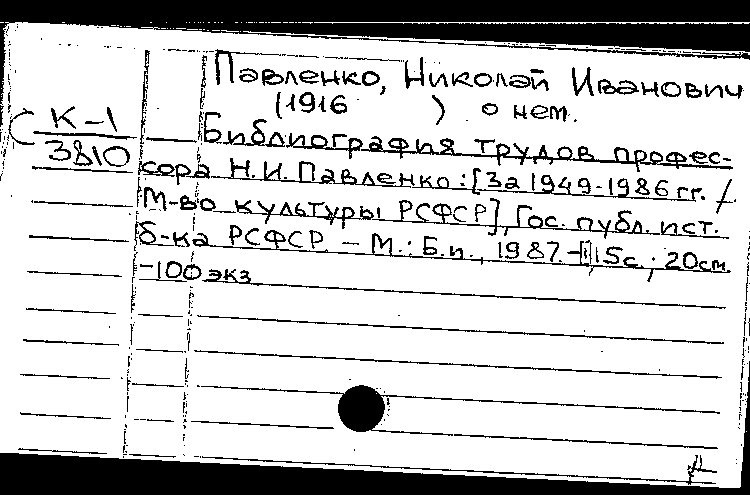 Павленко, Николай Иванович
(1916 ) о нем.
К-1
3810
Библиография трудов профес-
сора Н.И. Павленко: [За 1949-1986 гг. /
М-во культуры РСФСР], Гос. публ. ист.
б-ка РСФСР – М.: Б.и., 1987. – 15с.; 20см.
-100 экз